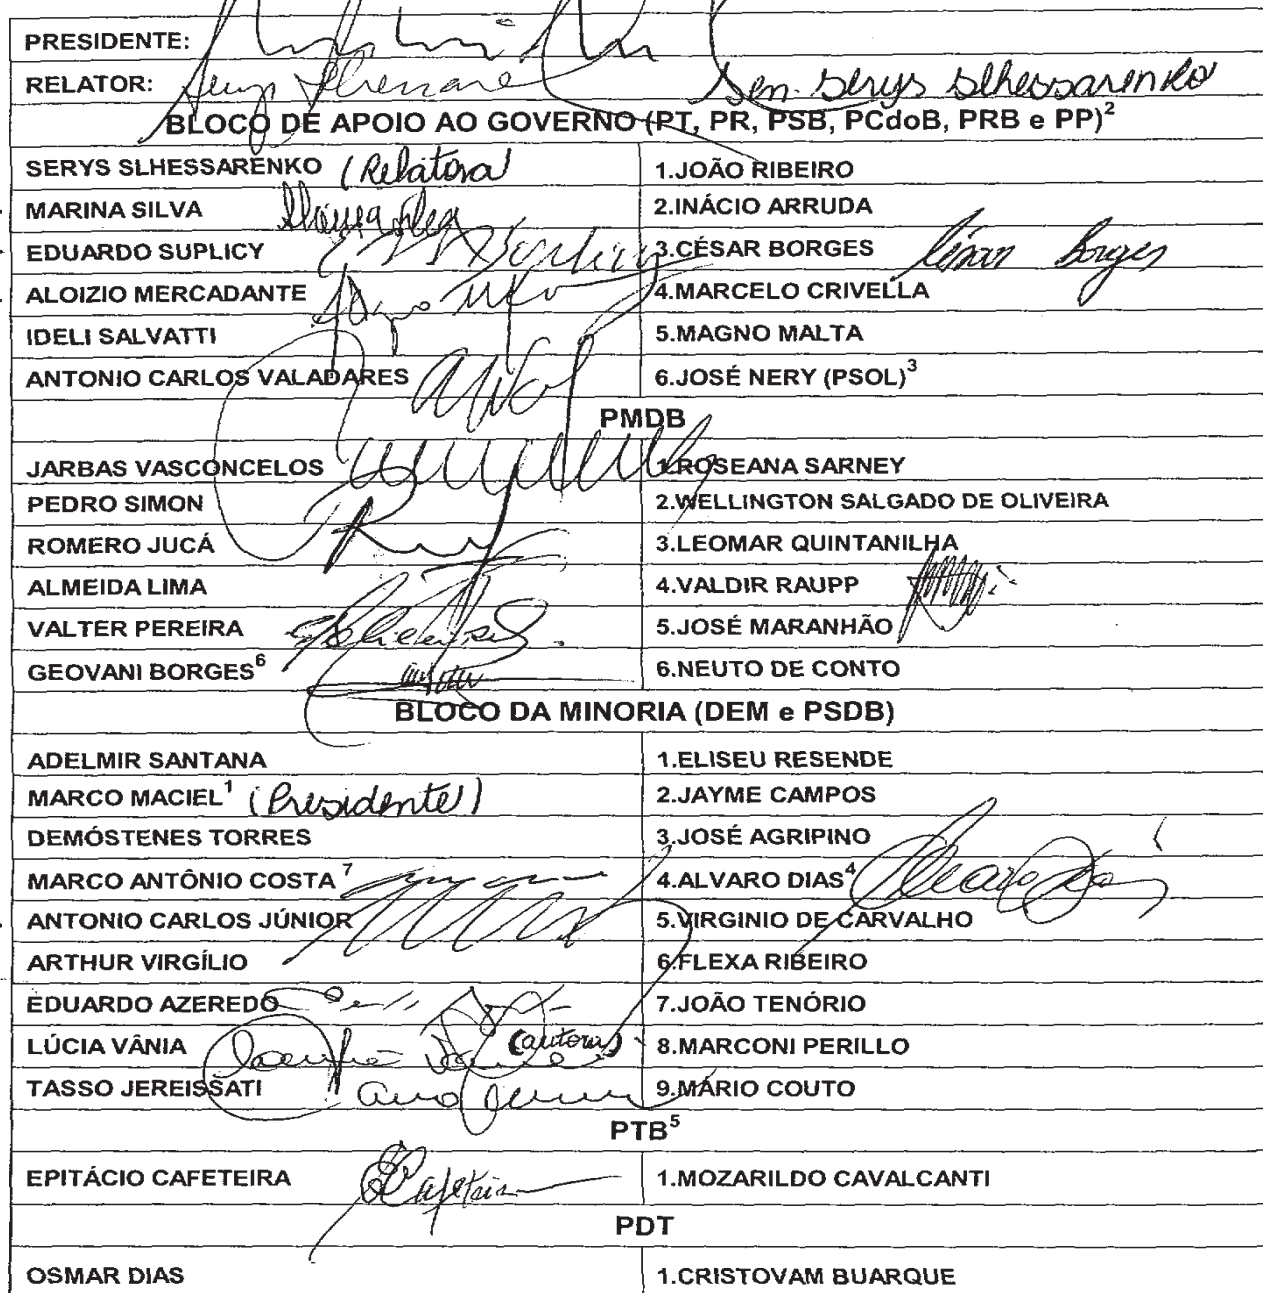 PRESIDENTE:
RELATOR: Sen. Serys Slhessarenko
BLOCO DE APOIO AO GOVERNO (PT, PR, PSB, PCdoB, PRB e PP)²
SERYS SLHESSARENKO (Relatora) 1.JOÃO RIBEIRO
MARINA SILVA 2.INÁCIO ARRUDA
EDUARDO SUPLICY 3.CÉSAR BORGES César Borges
ALOIZIO MERCADANTE 4.MARCELO CRIVELLA
IDELI SALVATTI 5.MAGNO MALTA
ANTONIO CARLOS VALADARES 6.JOSÉ NERY (PSOL)³
PMDB
JARBAS VASCONCELOS 1.ROSEANA SARNEY
PEDRO SIMON 2.WELLINGTON SALGADO DE OLIVEIRA
ROMERO JUCÁ 3.LEOMAR QUINTANILHA
ALMEIDA LIMA 4.VALDIR RAUPP
VALTER PEREIRA 5.JOSÉ MARANHÃO
GEOVANI BORGES⁶ 6.NEUTO DE CONTO
BLOCO DA MINORIA (DEM e PSDB)
ADELMIR SANTANA 1.ELISEU RESENDE
MARCO MACIEL¹ (Presidente) 2.JAYME CAMPOS
DEMÓSTENES TORRES 3.JOSÉ AGRIPINO
MARCO ANTÔNIO COSTA ⁷ 4.ALVARO DIAS⁴
ANTONIO CARLOS JÚNIOR 5.VIRGINIO DE CARVALHO
ARTHUR VIRGÍLIO 6.FLEXA RIBEIRO
EDUARDO AZEREDO 7.JOÃO TENÓRIO
LÚCIA VÂNIA (autora) 8.MARCONI PERILLO
TASSO JEREISSATI 9.MÁRIO COUTO
PTB⁵
EPITÁCIO CAFETEIRA 1.MOZARILDO CAVALCANTI
PDT
OSMAR DIAS 1.CRISTOVAM BUARQUE